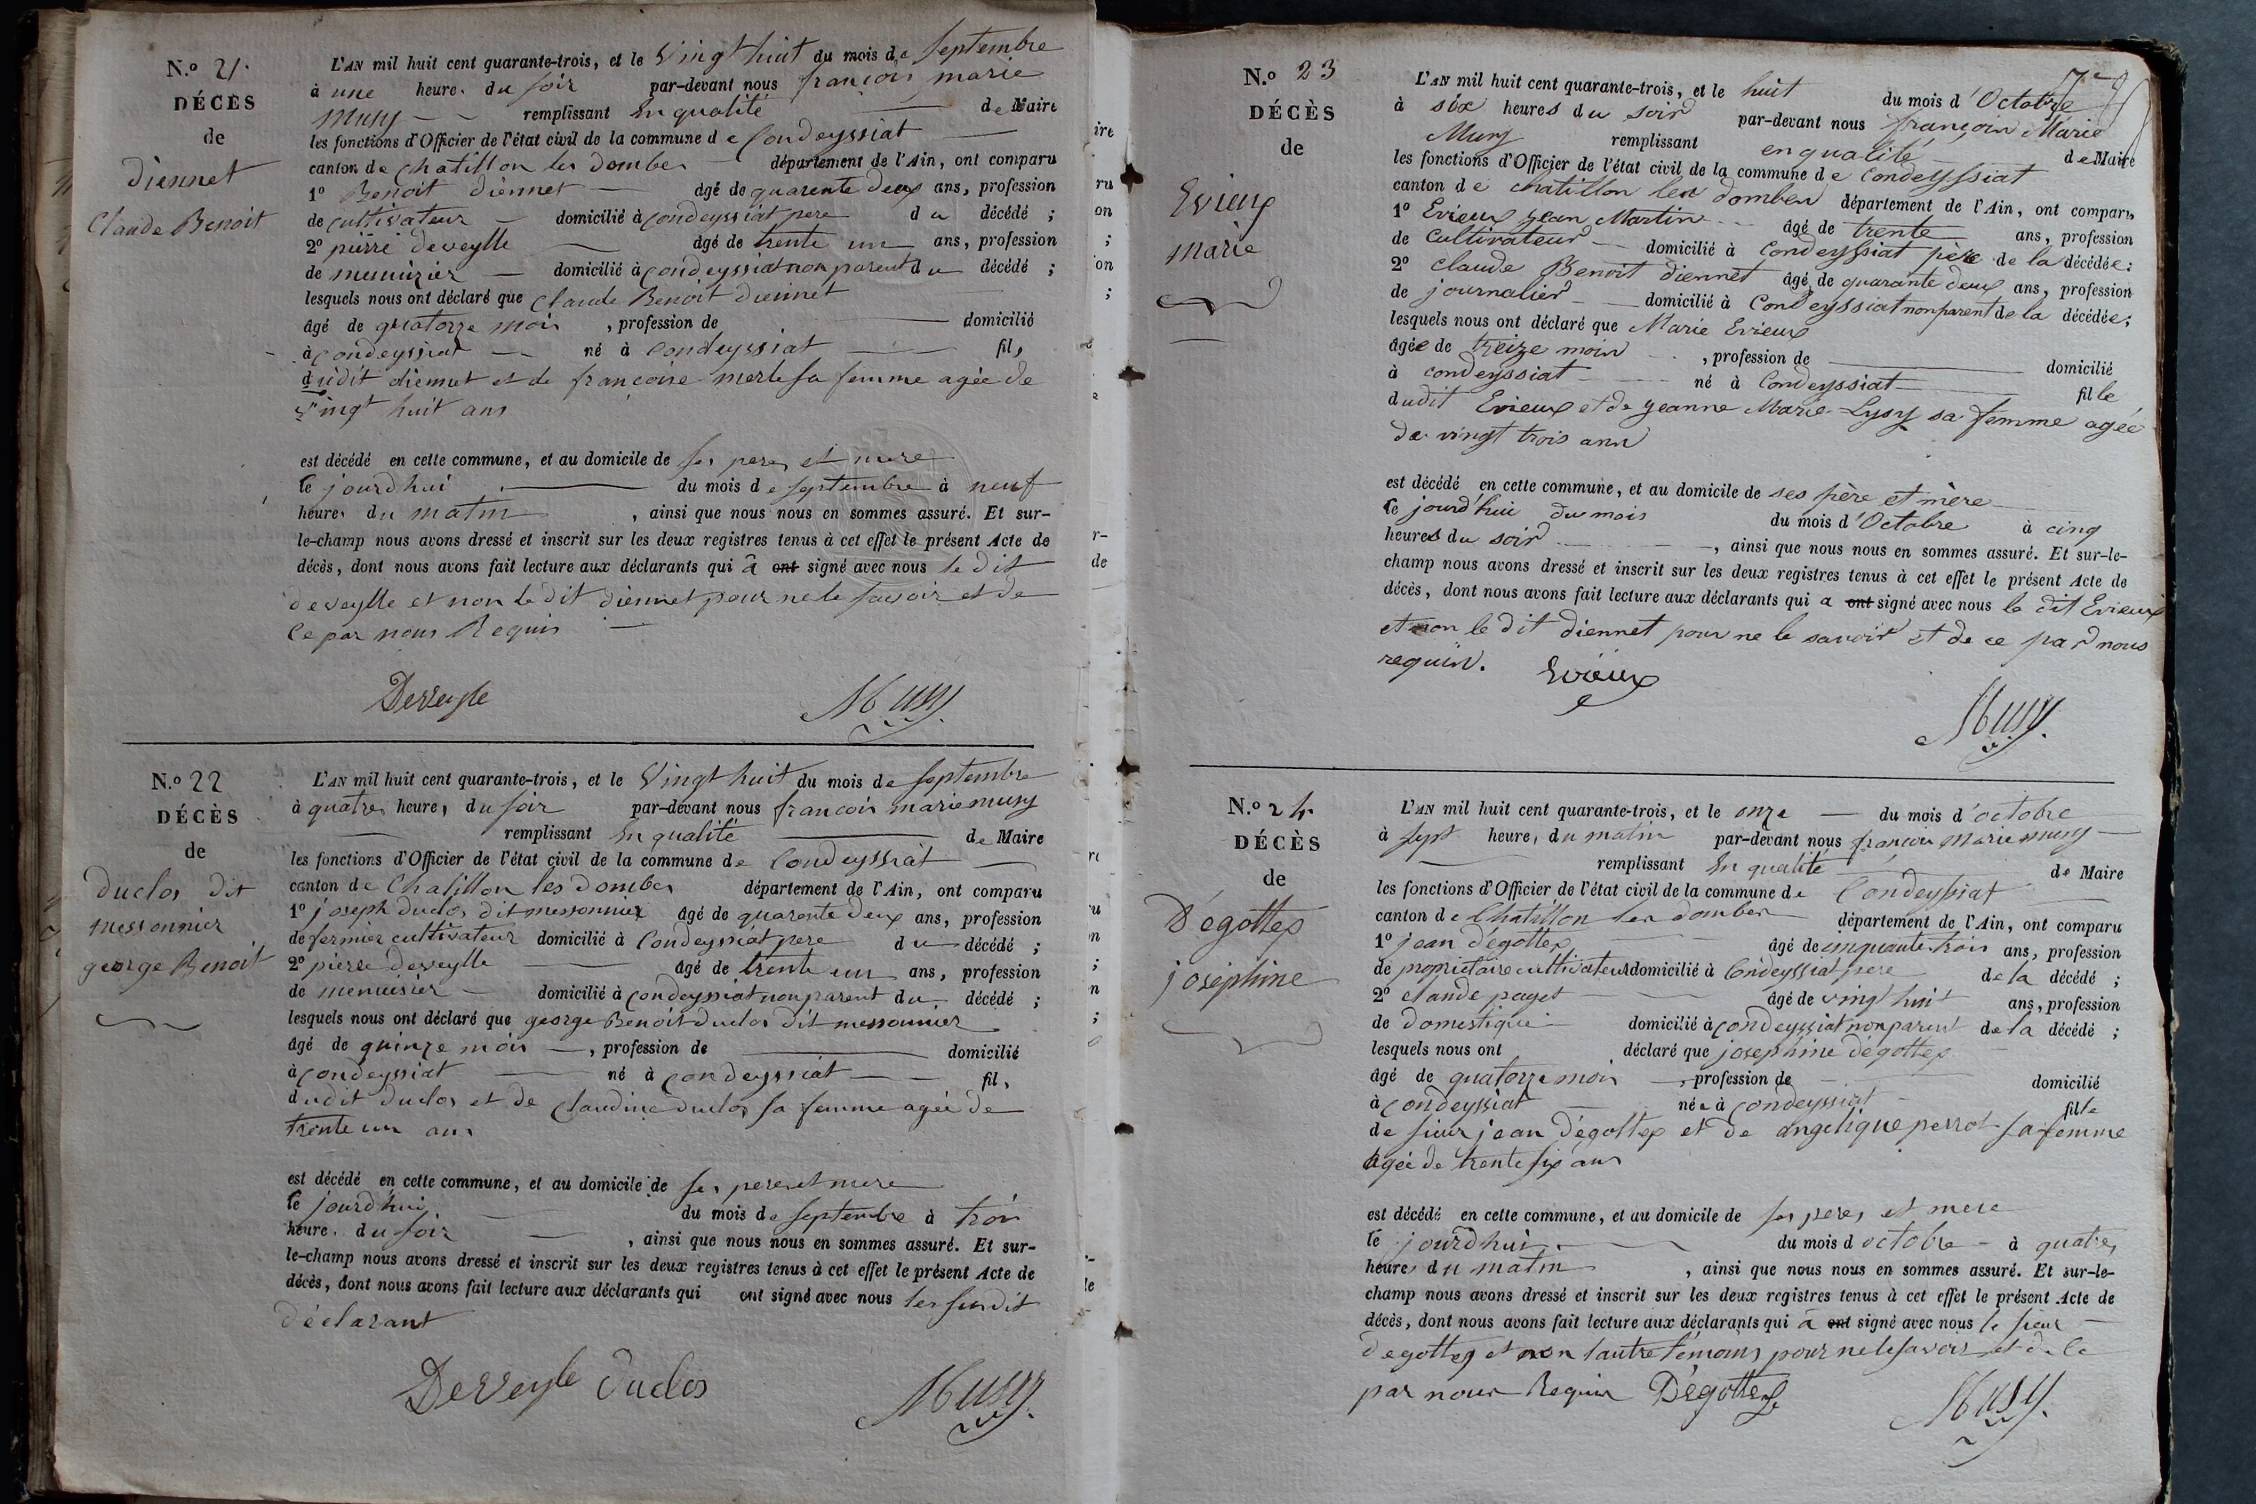 N.o 21.
DÉCÈS
de
diennet
Claude Benoit
L'AN mil huit cent quarante-trois, et le Vingt huit du mois de septembre
à une heure. du soir par-devant nous françois marie
musy remplissant en qualité de Maire
les fonctions d'Officier de l'état civil de la commune de Condeyssiat
canton de chatillon les dombes département de l'Ain, ont comparu
1o Benoit diennet âgé de quarente deux ans, profession
de cultivateur domicilié à condeyssiat pere du décédé ;
2o pierre deveylle âgé de trente un ans, profession
de menuizier domicilié à condeyssiat non parent du décédé ;
lesquels nous ont déclaré que Claude Benoit diennet
âgé de quatorze mois , profession de domicilié
à condeyssiat né à Condeyssiat fils
dudit diennet et de françoise merle sa femme agée de
vingt huit ans
est décédé en cette commune, et au domicile de ses peres et mere
le jourd'hui du mois de septembre à neuf
heures du matin , ainsi que nous nous en sommes assuré. Et sur-
le-champ nous avons dressé et inscrit sur les deux registres tenus à cet effet le présent Acte de
décès, dont nous avons fait lecture aux déclarants qui à ont signé avec nous le dit
deveylle et non le dit diennet pour ne le savoir et de
ce par nous Requis
Derveyle Musy
N.o 22
DÉCÈS
de
Duclos dit
messonnier
george Benoit
L'AN mil huit cent quarante-trois, et le Vingt huit du mois de septembre
à quatre heures du soir par-devant nous francois marie musy
remplissant en qualité de Maire
les fonctions d'Officier de l'état civil de la commune de Condeyssiat
canton de Chatillon les dombes département de l'Ain, ont comparu
1o joseph duclos dit messonnier âgé de quarente deux ans, profession
de fermier cultivateur domicilié à Condeyssiat pere du décédé ;
2o pierre deveylle âgé de trente un ans, profession
de menuisier domicilié à condeyssiat non parent du décédé ;
lesquels nous ont déclaré que george Benoit duclos dit messonnier
âgé de quinze mois , profession de domicilié
à condeyssiat né à condeyssiat fils
dudit duclos et de Claudine duclos sa femme agée de
trente un ans
est décédé en cette commune, et au domicile de ses peres et mere
le jourd'hui du mois de septembre à trois
heures du soir , ainsi que nous nous en sommes assuré. Et sur-
le-champ nous avons dressé et inscrit sur les deux registres tenus à cet effet le présent Acte de
décès, dont nous avons fait lecture aux déclarants qui ont signé avec nous les susdit
déclarant
Derveyle Duclos Musy
N.o 23
DÉCÈS
de
Evieux
Marie
L'AN mil huit cent quarante-trois, et le huit du mois d'Octobre
à six heures du soir par-devant nous françois Marie
Musy remplissant en qualité de Maire
les fonctions d'Officier de l'état civil de la commune de Condeyssiat
canton de chatillon les dombes département de l'Ain, ont comparu
1o Evieux jean Martin âgé de trente ans, profession
de Cultivateur domicilié à Condeyssiat père de la décédée;
2o claude Benoit diennet âgé de quarante deux ans, profession
de journalier domicilié à Condeyssiat non parent de la décédée;
lesquels nous ont déclaré que Marie Evieux
âgée de treize mois , profession de domicilié
à condeyssiat né à Condeyssiat fille
dudit Evieux et de jeanne Marie Lysy sa femme agée
de vingt trois ans
est décédé en cette commune, et au domicile de ses père et mère
le jourd'hui du mois du mois d'Octobre à cinq
heures du soir , ainsi que nous nous en sommes assuré. Et sur-le-
champ nous avons dressé et inscrit sur les deux registres tenus à cet effet le présent Acte de
décès, dont nous avons fait lecture aux déclarants qui a ont signé avec nous le dit Evieux
et non le dit diennet pour ne le savoir et de ce par nous
requis. Evieux
Musy
N.o 24
DÉCÈS
de
Dégottex
joséphine
L'AN mil huit cent quarante-trois, et le onze du mois d'octobre
à sept heures du matin par-devant nous françois Marie musy
remplissant en qualité de Maire
les fonctions d'Officier de l'état civil de la commune de Condeyssiat
canton de Chatillon les dombes département de l'Ain, ont comparu
1o jean dégottex âgé de cinquante trois ans, profession
de proprietaire cultivateur domicilié à Condeyssiat pere de la décédé ;
2o claude paget âgé de vingt huit ans, profession
de domestique domicilié à condeyssiat non parent de la décédé ;
lesquels nous ont déclaré que josephine dégottex
âgé de quatorze mois , profession de domicilié
à condeyssiat née à condeyssiat fille
de sieur jean Dégottex et de angelique perrot sa femme
agée de trente six ans
est décédé en cette commune, et au domicile de ses peres et mere
le jourd'hui du mois d octobre à quatre
heures du matin , ainsi que nous nous en sommes assuré. Et sur-le-
champ nous avons dressé et inscrit sur les deux registres tenus à cet effet le présent Acte de
décès, dont nous avons fait lecture aux déclarants qui à ont signé avec nous le sieur
degottex et non l'autre témoins pour ne le savoir et de ce
par nous Requis Dégottex Musy